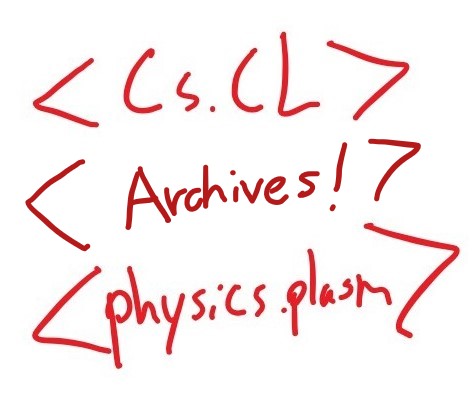 <Cs.CL>
<Archives!>
<physics.plasm>